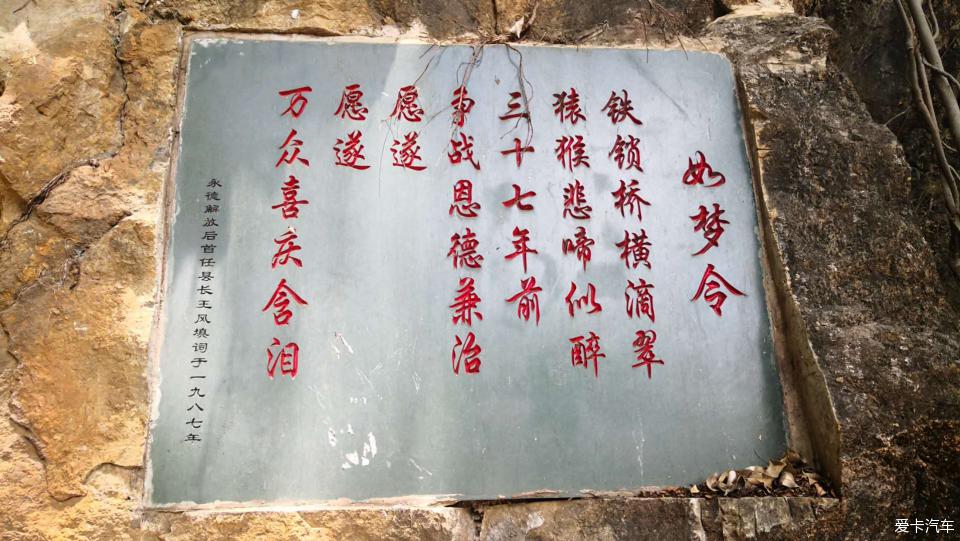 如梦令
铁锁桥横滴翠
猿猴悲啼似醉
三十七年前
争战恩德兼治
愿遂
愿遂
万众喜庆含泪
永德解放后首任县长王风填词于一九八七年
爱卡汽车